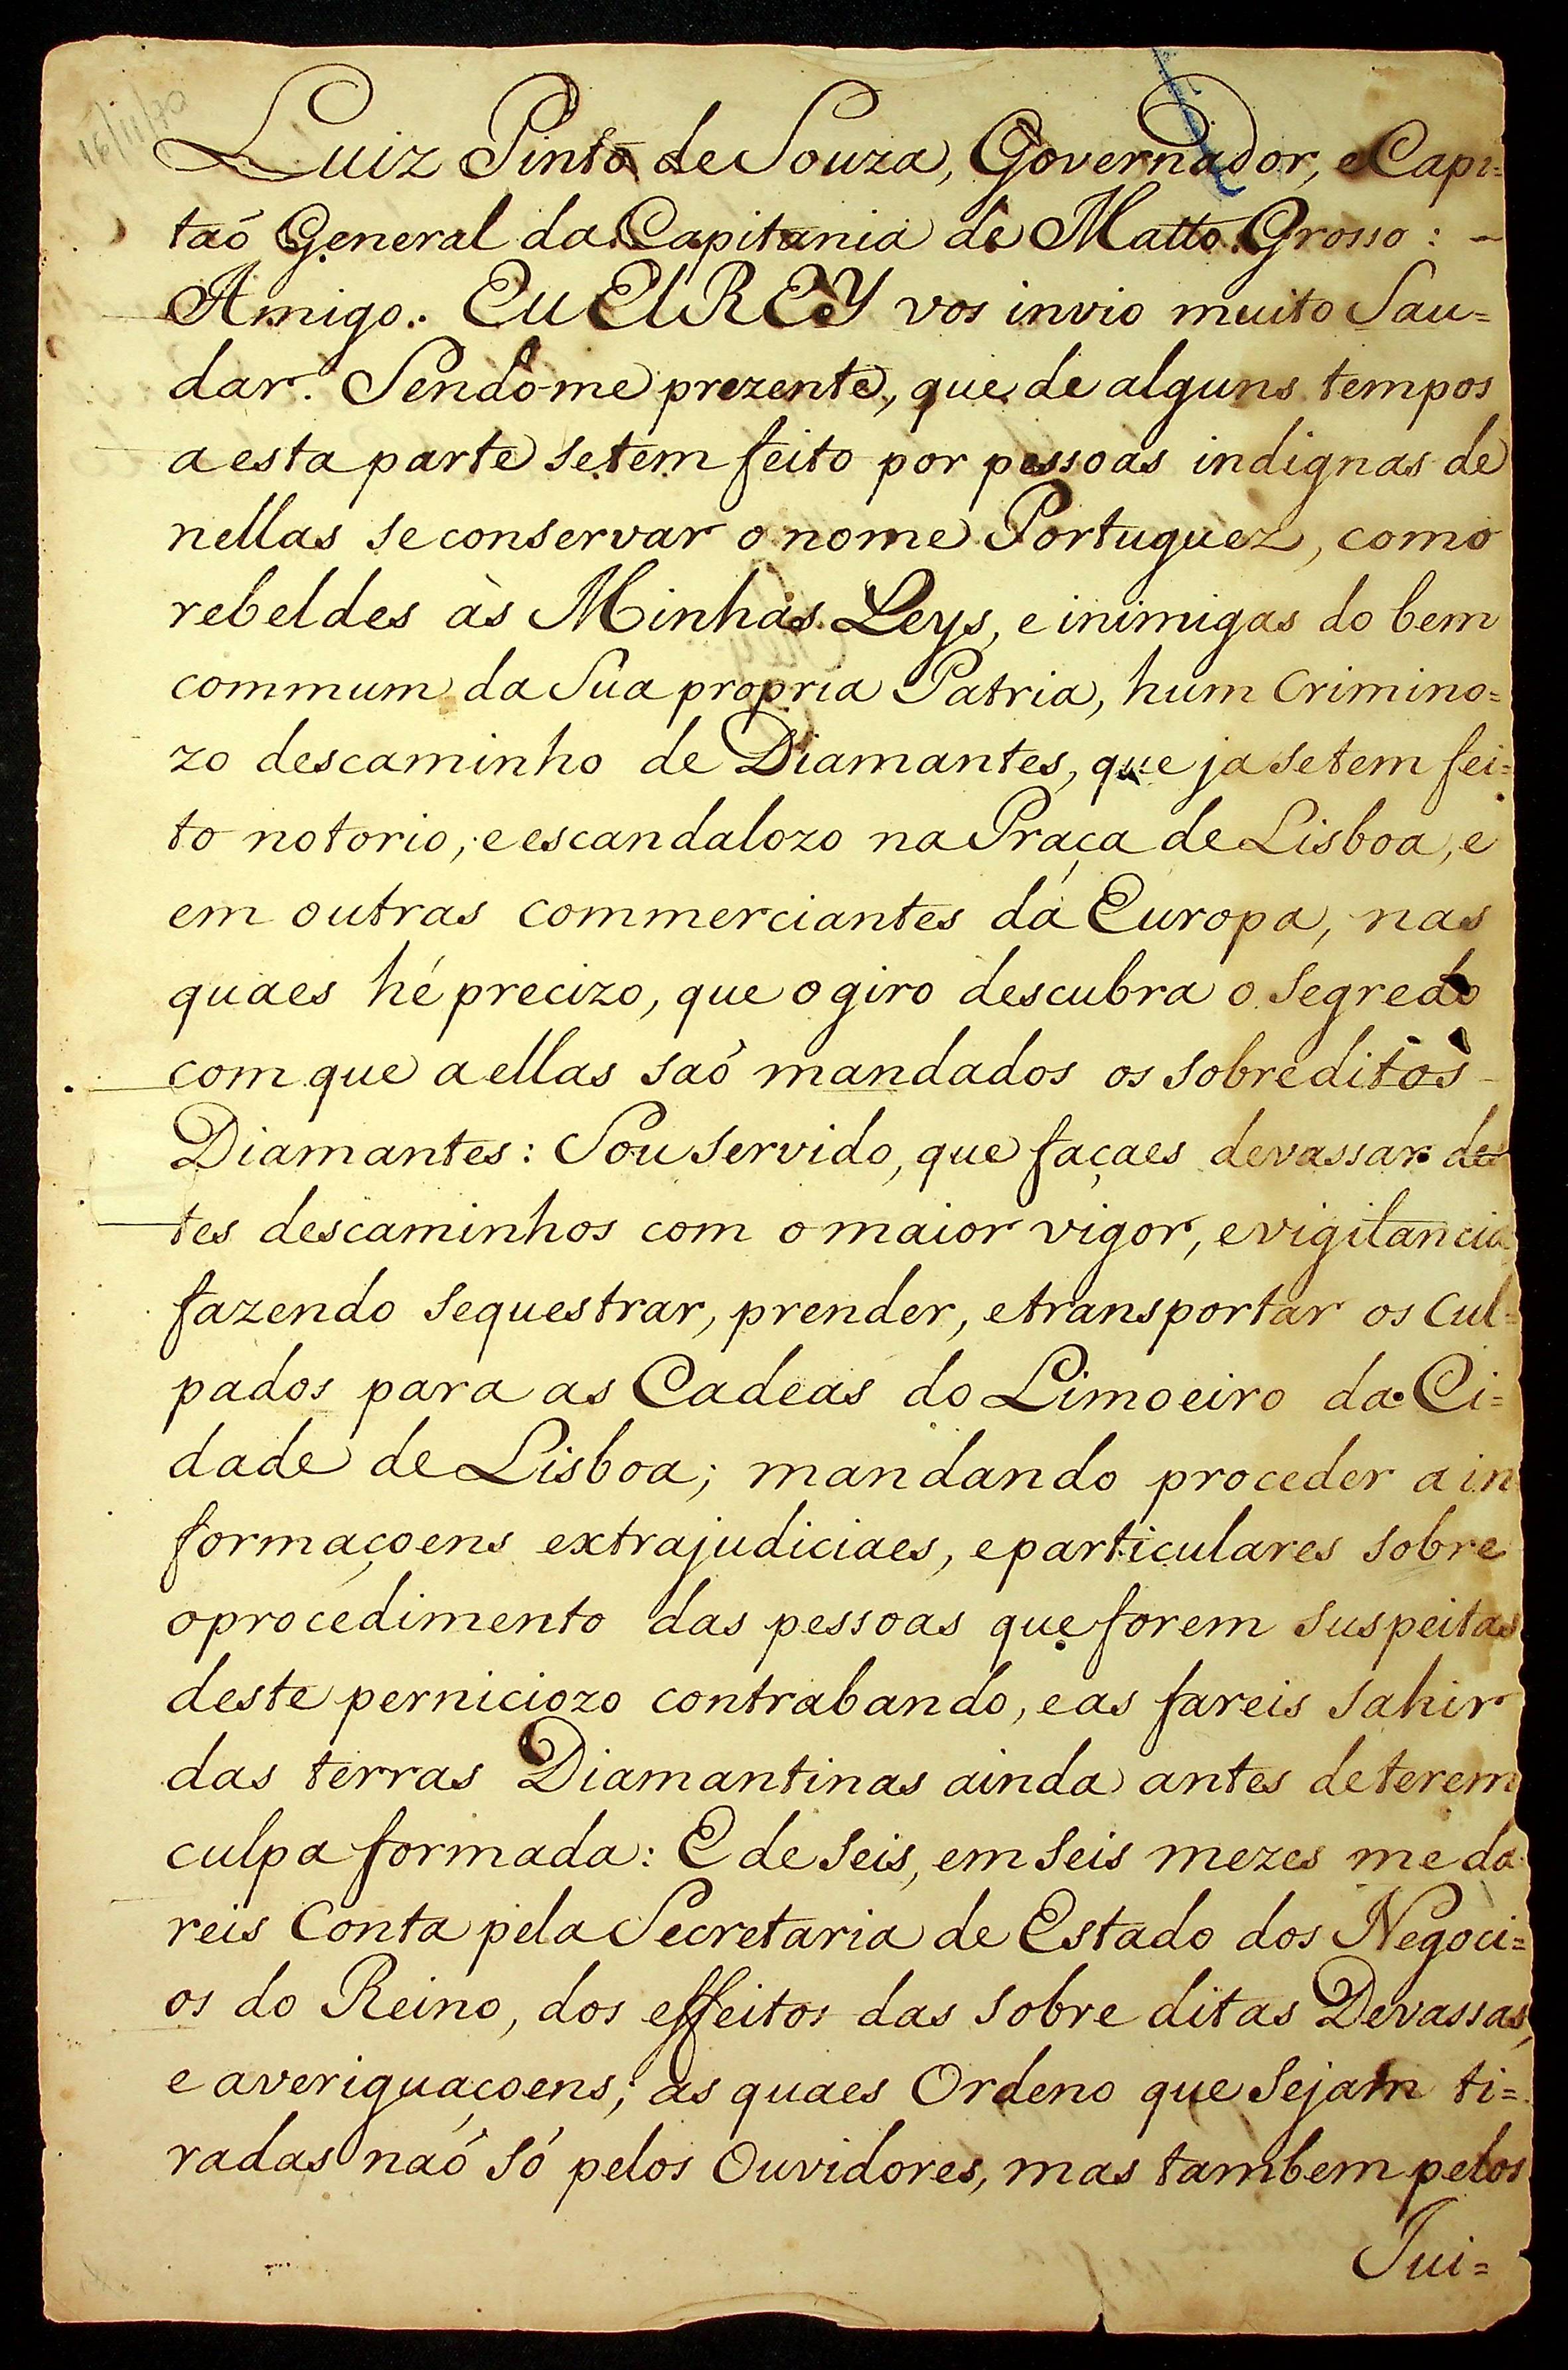 16/11/70
Luiz Pinto de Souza, Governador, e Capi=
taõ General da Capitania de Matto Grosso: -
Amigo. EU ElREY vos invio muito Sau=
dar. Sendo-me prezente, que de alguns tempos
a esta parte se tem feito por pessoas indignas de
nellas se conservar o nome Portuguez, como
rebeldes às Minhas Leys, e inimigas do bem
commum da Sua propria Patria, hum Crimino=
zo descaminho de Diamantes, que ja se tem fei=
to notorio, e escandalozo na Praça de Lisboa, e
em outras commerciantes da Europa, nas
quaes hé precizo, que o giro descubra o segredo
com que a ellas saó mandados os sobreditos
Diamantes: Sou servido, que façaes devassar des
tes descaminhos com o maior vigor, e vigilancia
fazendo sequestrar, prender, e transportar os Cul=
pados para as Cadeas do Limoeiro da Ci=
dade de Lisboa; mandando proceder a in
formaçoens extrajudiciaes, e particulares sobre
o procedimento das pessoas que forem suspeitas
deste perniciozo contrabando, e as fareis sahir
das terras Diamantinas ainda antes de terem
culpa formada: E de seis, em seis mezes me da
reis Conta pela Secretaria de Estado dos Negoci=
os do Reino, dos effeitos das sobre ditas Devassas,
e averiguaçoens; as quaes Ordeno que sejam ti=
radas naó só pelos Ouvidores, mas tambem pelos
Jui=